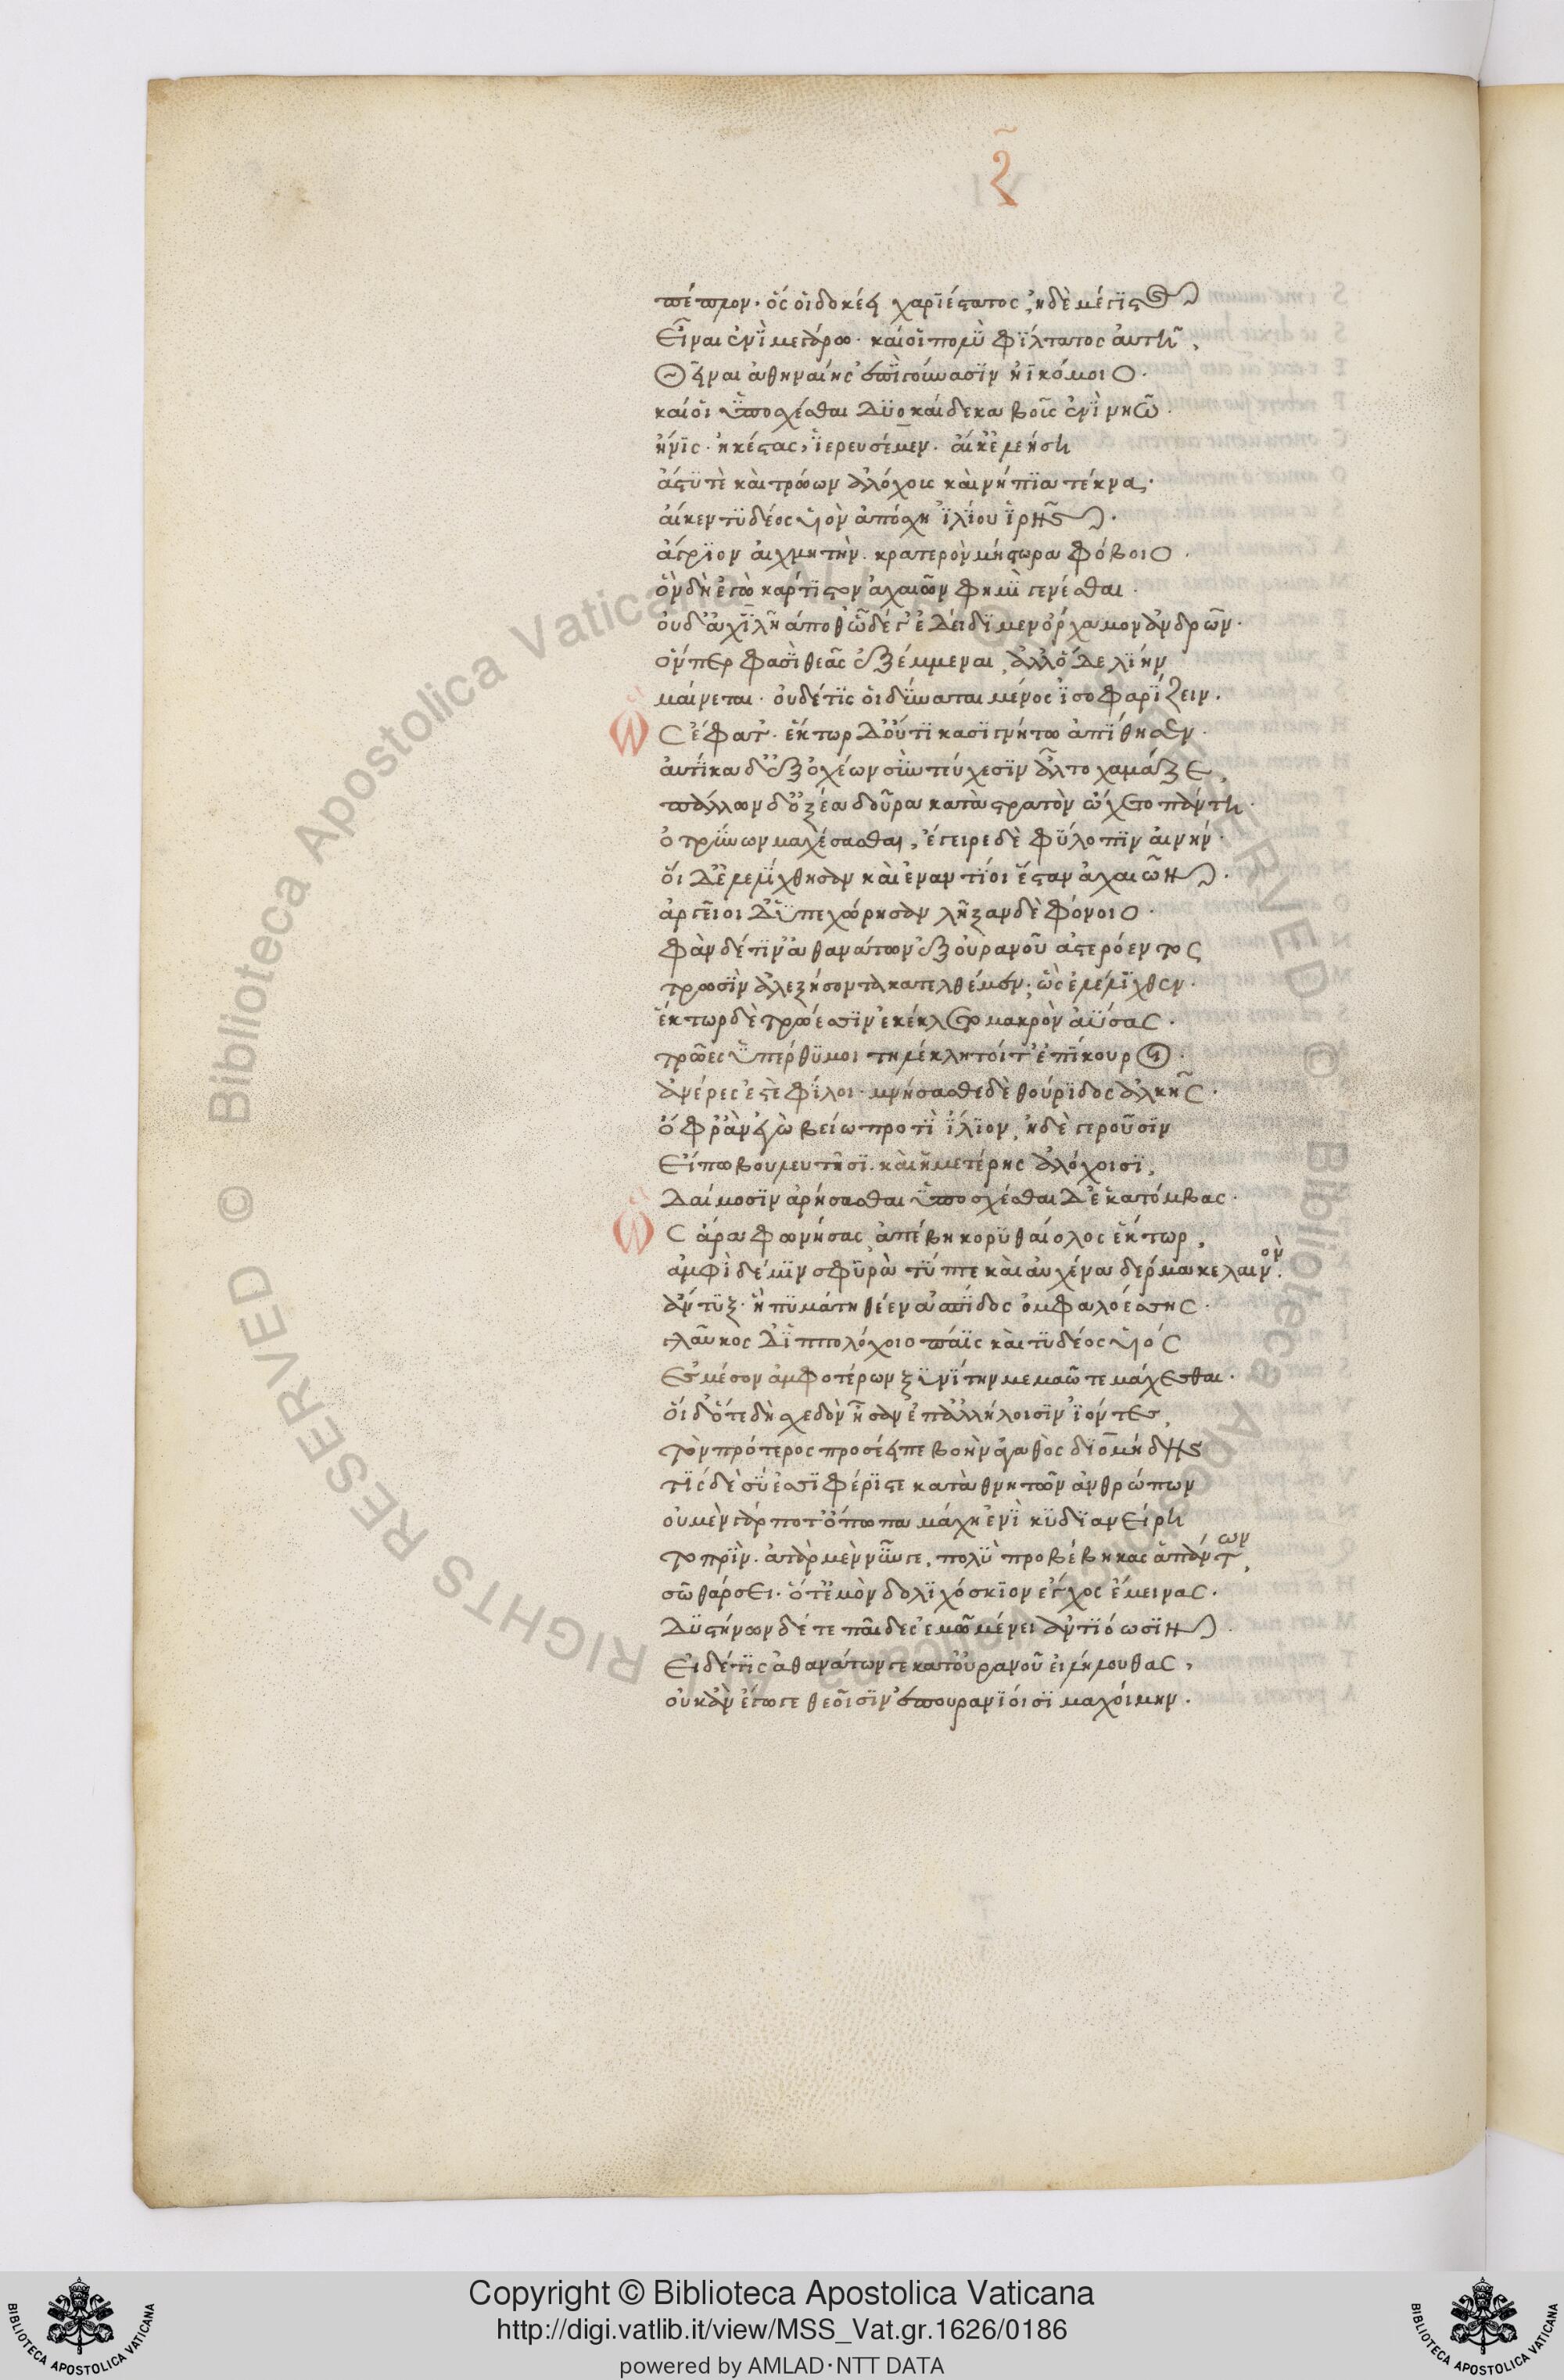 ζ̃
πέπλον· ὅς οἱ δοκέει χαριέστατος, ἠδὲ μέγιστος
εἶναι ἐνὶ μεγάρω· καί οἱ πολὺ φίλτατος αὐτῆ,
θεῖναι ἀθηναίης ἐπὶ γούνασιν ἠϊκόμοιο.
καί οἱ ὑποσχέσθαι δυοκαίδεκα βοῦς ἐνὶ νηῶ.
ἤνις· ἠκέστας, ἱερευσέμεν· αἴ κ' ἐλεήση
ἄστυ τὲ καὶ τρώων ἀλόχους καὶ νήπια τέκνα.
αἴ κεν τυδέος υἱὸν ἀπόσχη ἰλίου ἱρῆς.
ἄγριον αἰχμητὴν· κρατερὸν μήστωρα φόβοιο.
ὃν δὴ ἐγὼ κάρτιστον ἀχαιῶν φημὶ γενέσθαι.
οὐδ' ἀχιλῆα ποθ' ὧδέ γ' ἐδείδιμεν ὄρχαμον ἀνδρῶν.
ὅνπερ φασὶ θεᾶς ἐξέμμεναι, ἀλλ' ὅδε λίην
μαίνεται· οὐδέ τίς οἱ δύναται μένος ἰσοφαρίζειν.
Ως ἔφατ'· ἕκτωρ δ' οὔτι κασιγνήτω ἀπίθησεν.
αὐτίκα δ' ἐξ ὀχέων σὺν τεύχεσιν ἆλτο χαμάζε,
πάλλων δ' ὀξέα δοῦρα κατὰ στρατὸν ὤχετο πάντη.
ὀτρύνων μαχέσασθαι, ἔγειρε δὲ φύλοπιν αἰνήν.
οἱ δ' ἐλελίχθησαν καὶ ἐναντίοι ἔσταν ἀχαιῶν.
ἀργεῖοι δ' ὑπεχώρησαν λῆξαν δὲ φόνοιο.
φὰν δέ τιν' ἀθανάτων ἐξ οὐρανοῦ ἀστερόεντος
τρωσὶν ἀλεξήσοντα κατελθέμεν· ὣς ἐλέλιχθεν.
ἕκτωρ δὲ τρώεσσιν ἐκέκλετο μακρὸν ἀύσας.
τρῶες ὑπέρθυμοι τηλέκλητοί τ' ἐπίκουροι.
ἀνέρες ἐστὲ φίλοι· μνήσασθε δὲ θούριδος ἀλκῆς.
ὄφρ' ἂν ἐγὼ βείω προτὶ ἴλιον, ἠδὲ γερουσιν
εἴπω βουλευτῆσι· καὶ ἡμετέρης ἀλόχοισι,
δαίμοσιν ἀρήσασθαι ὑποσχέσθαι δ' ἑκατόμβας.
Ως ἄρα φωνήσας ἀπέβη κορυθαίολος ἕκτωρ,
ἀμφὶ δέ μιν σφυρὰ τύπτε καὶ αὐχένα δέρμα κελαινὸν.
ἄντυξ· ἣ πυμάτη θέεν ἀσπίδος ὀμφαλοέσσης.
γλαῦκος δ' ἱππολόχοιο πάϊς καὶ τυδέος υἱός
ἐς μέσον ἀμφοτέρων ξυνίτην μεμαῶτε μάχεσθαι.
οἱ δ' ὅτε δὴ σχεδὸν ἦσαν ἐπ' ἀλλήλοισιν ἰόντες,
τὸν πρότερος προσέειπε βοὴν ἀγαθὸς διομήδης
τίς δὲ σύ ἐσσι φέριστε καταθνητῶν ἀνθρώπων
οὐ μὲν γάρ ποτ' ὄπωπα μάχη ἐνὶ κυδιανείρη
τοπρὶν· ἀτὰρ μὲν νῦν γε, πολὺ προβέβηκας ἁπάντων,
σῶ θάρσει· ὅ τ' ἐμὸν δολιχόσκιον ἔγχος ἔμεινας.
δυστήνων δέ τε παῖδες ἐμῶ μένει ἀντιόωσιν.
εἰ δέ τις ἀθανάτων γε κατ' οὐρανοῦ εἰλήλουθας,
οὐκ ἂν ἔγωγε θεοῖσιν ἐπουρανίοισι μαχοίμην.
Copyright © Biblioteca Apostolica Vaticana
http://digi.vatlib.it/view/MSS_Vat.gr.1626/0186
powered by AMLAD·NTT DATA